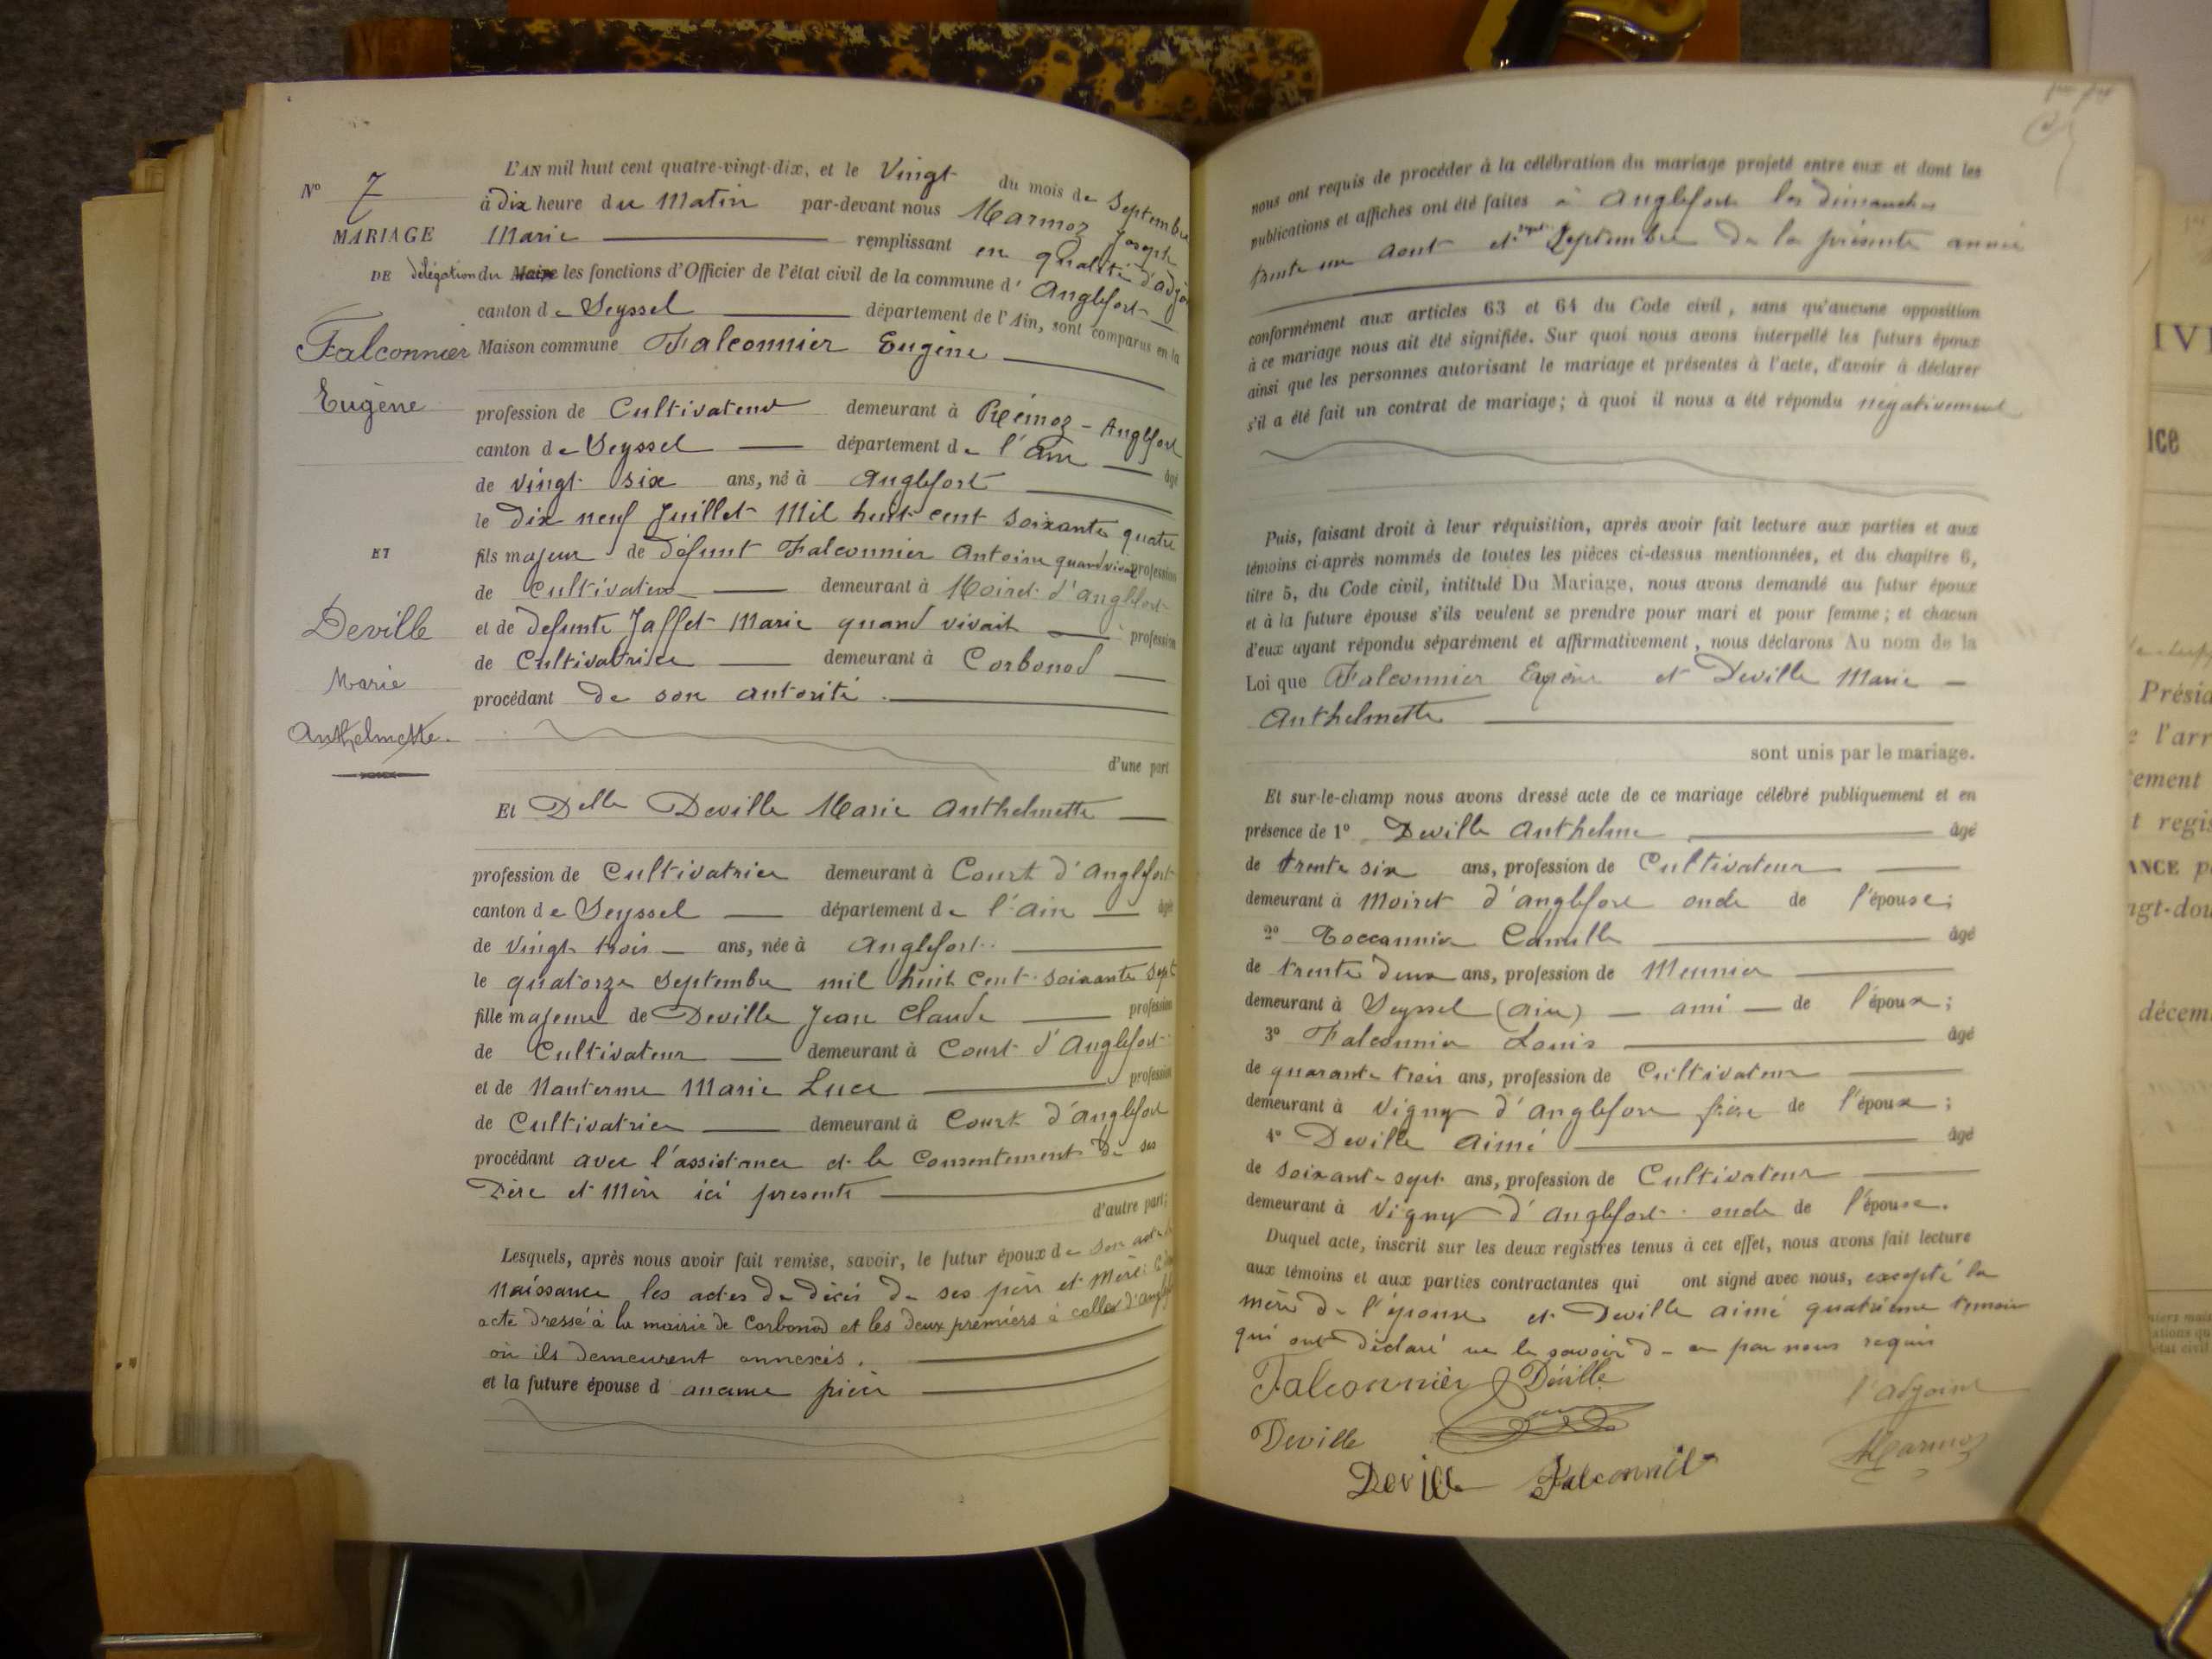 N° 7
MARIAGE
DE
Falconnier
Eugène
ET
Deville
Marie
Anthelmette.
L'AN mil huit cent quatre-vingt-dix, et le Vingt du mois de Septembre
à dix heure du Matin par-devant nous Marmoz Joseph
Marie remplissant en qualité d'adjoint
délégation du Maire les fonctions d'Officier de l'état civil de la commune d' Anglefort
canton de Seyssel département de l'Ain, sont comparus en la
Maison commune Falconnier Eugène
profession de Cultivateur demeurant à Rémoz - Anglefort
canton de Seyssel département de l'Ain âgé
de vingt six ans, né à Anglefort
le dix neuf Juillet Mil huit cent soixante quatre
fils majeur de défunt Falconnier Antoine quand vivait profession
de Cultivateur demeurant à Moiret d'anglefort
et de defunte Jaffet Marie quand vivait profession
de Cultivatrice demeurant à Corbonod
procédant de son autorité
d'une part
Et Delle Deville Marie Anthelmette
profession de Cultivatrice demeurant à Court d'Anglefort
canton de Seyssel département de l'ain âgé
de vingt trois ans, née à Anglefort
le quatorze septembre mil huit cent soixante sept
fille majeure de Deville Jean Claude profession
de Cultivateur demeurant à Court d'Anglefort
et de Nanterme Marie Luce profession
de Cultivatrice demeurant à Court d'anglefort
procédant avec l'assistance et le Consentement de ses
Père et Mère ici présents
d'autre part;
Lesquels, après nous avoir fait remise, savoir, le futur époux de son acte de
Naissance les actes de décès de ses père et Mère
acte dressé à la mairie de Corbonod et les deux premiers à celles d'anglefort
où ils demeurent annexés.
et la future épouse d'aucune pièce
nous ont requis de procéder à la célébration du mariage projeté entre eux et dont les
publications et affiches ont été faites à Anglefort les dimanches
trente un aout et sept Septembre de la présente année
conformément aux articles 63 et 64 du Code civil, sans qu'aucune opposition
à ce mariage nous ait été signifiée. Sur quoi nous avons interpellé les futurs époux
ainsi que les personnes autorisant le mariage et présentes à l'acte, d'avoir à déclarer
s'il a été fait un contrat de mariage; à quoi il nous a été répondu négativement
Puis, faisant droit à leur réquisition, après avoir fait lecture aux parties et aux
témoins ci-après nommés de toutes les pièces ci-dessus mentionnées, et du chapitre 6,
titre 5, du Code civil, intitulé Du Mariage, nous avons demandé au futur époux
et à la future épouse s'ils veulent se prendre pour mari et pour femme; et chacun
d'eux ayant répondu séparément et affirmativement, nous déclarons Au nom de la
Loi que Falconnier Eugène et Deville Marie
Anthelmette
sont unis par le mariage.
Et sur-le-champ nous avons dressé acte de ce mariage célébré publiquement et en
présence de 1° Deville Anthelme âgé
de trente six ans, profession de Cultivateur
demeurant à Moiret d'anglefort oncle de l'épouse;
2° Toccannier Camille âgé
de trente deux ans, profession de Meunier
demeurant à Seyssel (ain) ami de l'époux;
3° Falconnier Louis âgé
de quarante trois ans, profession de Cultivateur
demeurant à Vigny d'anglefort frère de l'époux;
4° Deville aimé âgé
de soixante sept ans, profession de Cultivateur
demeurant à Vigny d'anglefort oncle de l'épouse.
Duquel acte, inscrit sur les deux registres tenus à cet effet, nous avons fait lecture
aux témoins et aux parties contractantes qui ont signé avec nous, excepté la
mère de l'épouse et Deville aimé quatrième temoin
qui ont déclaré ne le savoir de ce par nous requis
Falconnier Déville
l'adjoint
Deville
Marmoz
Deville Falconnier